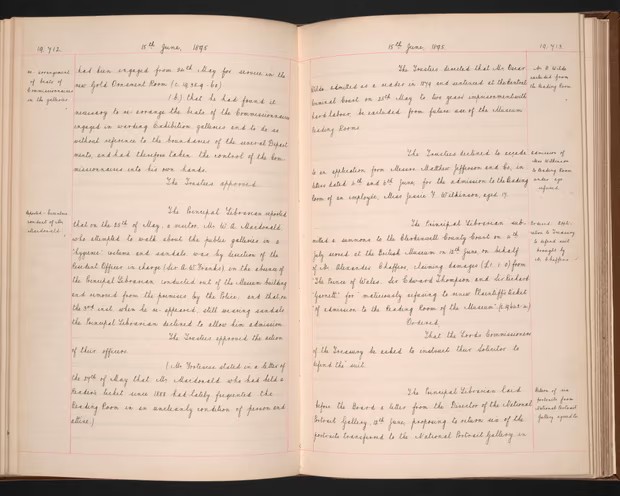 19. 712.
15th June, 1895
re arrangement
of beats of
Commissionaires
in the galleries
had been engaged from 20th May for service in the
new Gold Ornament Room
(b) that he had found it
necessary to re arrange the beats of the Commissionaires
engaged in warding Exhibition galleries and to do so
without reference to the boundaries of the several Depart
ments, and had therefore taken the control of the Com
missionaires into his own hands.
The Trustees approved.
Reported
conduct of Mr
Macdonald.
The Principal Librarian reported
that on the 25th of May, a visitor, Mr W. A. Macdonald
who attempted to walk about the public galleries in a
"hygienic" costume and sandals was by direction of the
Resident Officer in charge (Sir A. W. Franks) in the absence of
the Principal Librarian conducted out of the Museum building
and removed from the premises by the Police, and that on
the 3rd inst. when he re appeared, still wearing sandals
the Principal Librarian declined to allow him admission.
The Trustees approved the action
of their officers.
(Mr Fortescue stated in a letter of
the 29th of May that Mr Macdonald who had held a
Readers ticket since 1888 had lately frequented the
Reading Room in an uncleanly condition of person and
attire.)
15th June, 1895
19. 713.
The Trustees directed that Mr Oscar
Wilde admitted as a reader in 1879 and sentenced at the Central
Criminal Court on 25th May to two years imprisonment with
hard labour be excluded from future use of the Museum
Reading Room.
Mr O. Wilde
excluded from
the Reading Room
The Trustees declined to accede
to an application from Messrs Matthew Jefferson and Co, in
letters dated 4th and 8th June for the admission to the Reading
Room of an employee, Miss Jessie G. Wilkinson, aged 19.
Admission of
Miss Wilkinson
to Reading Room
under age
refused
The Principal Librarian sub
mitted a summons to the Clerkenwell County Court on 11th
July served at the British Museum on 13th June, on behalf
of Mr Alexander Chaffers, claiming damages (£1. 1. 0) from
"The Prince of Wales, Sir Edward Thompson and Sir Richard
Garnett" for "maliciously refusing to renew Plaintiff's ticket
"of admission to the Reading Room of the Museum"
Ordered,
That the Lords Commissioners
of the Treasury be asked to instruct their Solicitor to
defend the suit.
to Treasury
to defend suit
brought by
Mr Chaffers
The Principal Librarian laid
before the Board a letter from the Director of the National
Portrait Gallery, 12th June proposing to return six of the
portraits transferred to the National Portrait Gallery in
Return of six
portraits from
National Portrait
Gallery agreed to